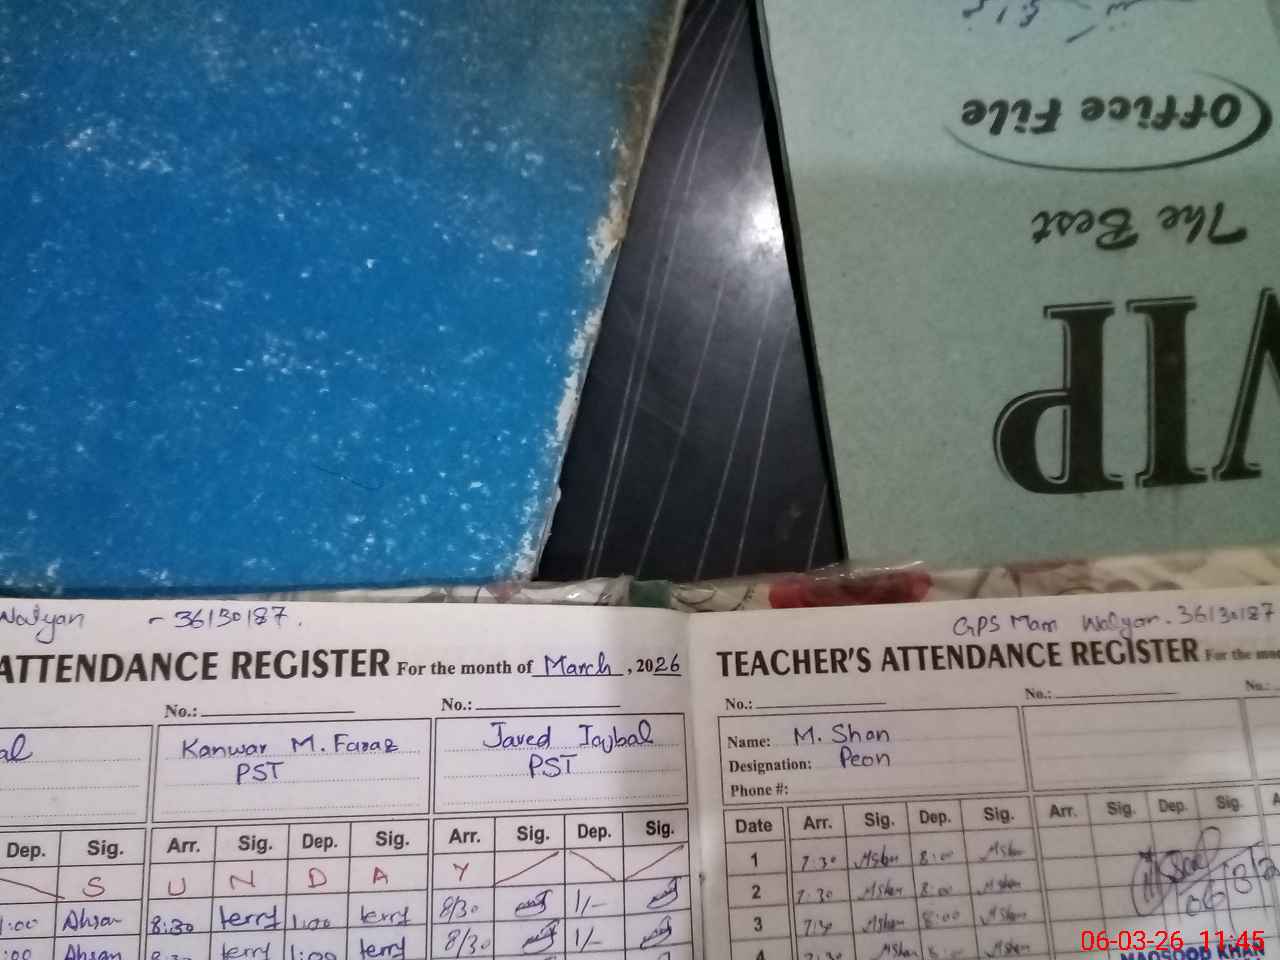 VIP
The Best
Office File
Walyan - 36130187.
ATTENDANCE REGISTER For the month of March, 2026
No.: No.:
al Kanwar M. Faraz Javed Iqbal
PST PST
Dep. Sig. Arr. Sig. Dep. Sig. Arr. Sig. Dep. Sig.
S U N D A Y
1:00 Ahsan 8:30 1:00 8/30 1/-
:00 Ahsan 8:30 1:00 8/30 1/-
GPS Mam Walyan. 36130187
TEACHER'S ATTENDANCE REGISTER For the mo
No.: No.: No.:
Name: M. Shan
Designation: Peon
Phone #:
Date Arr. Sig. Dep. Sig. Arr. Sig. Dep. Sig. A
1 7:30 MShan 8:00 MShan
2 7:30 MShan 8:00 MShan
3 7:30 MShan 8:00 MShan
4 7:30 MShan 8:00 MShan
MAQSOOD KHAN
06-03-26 11:45